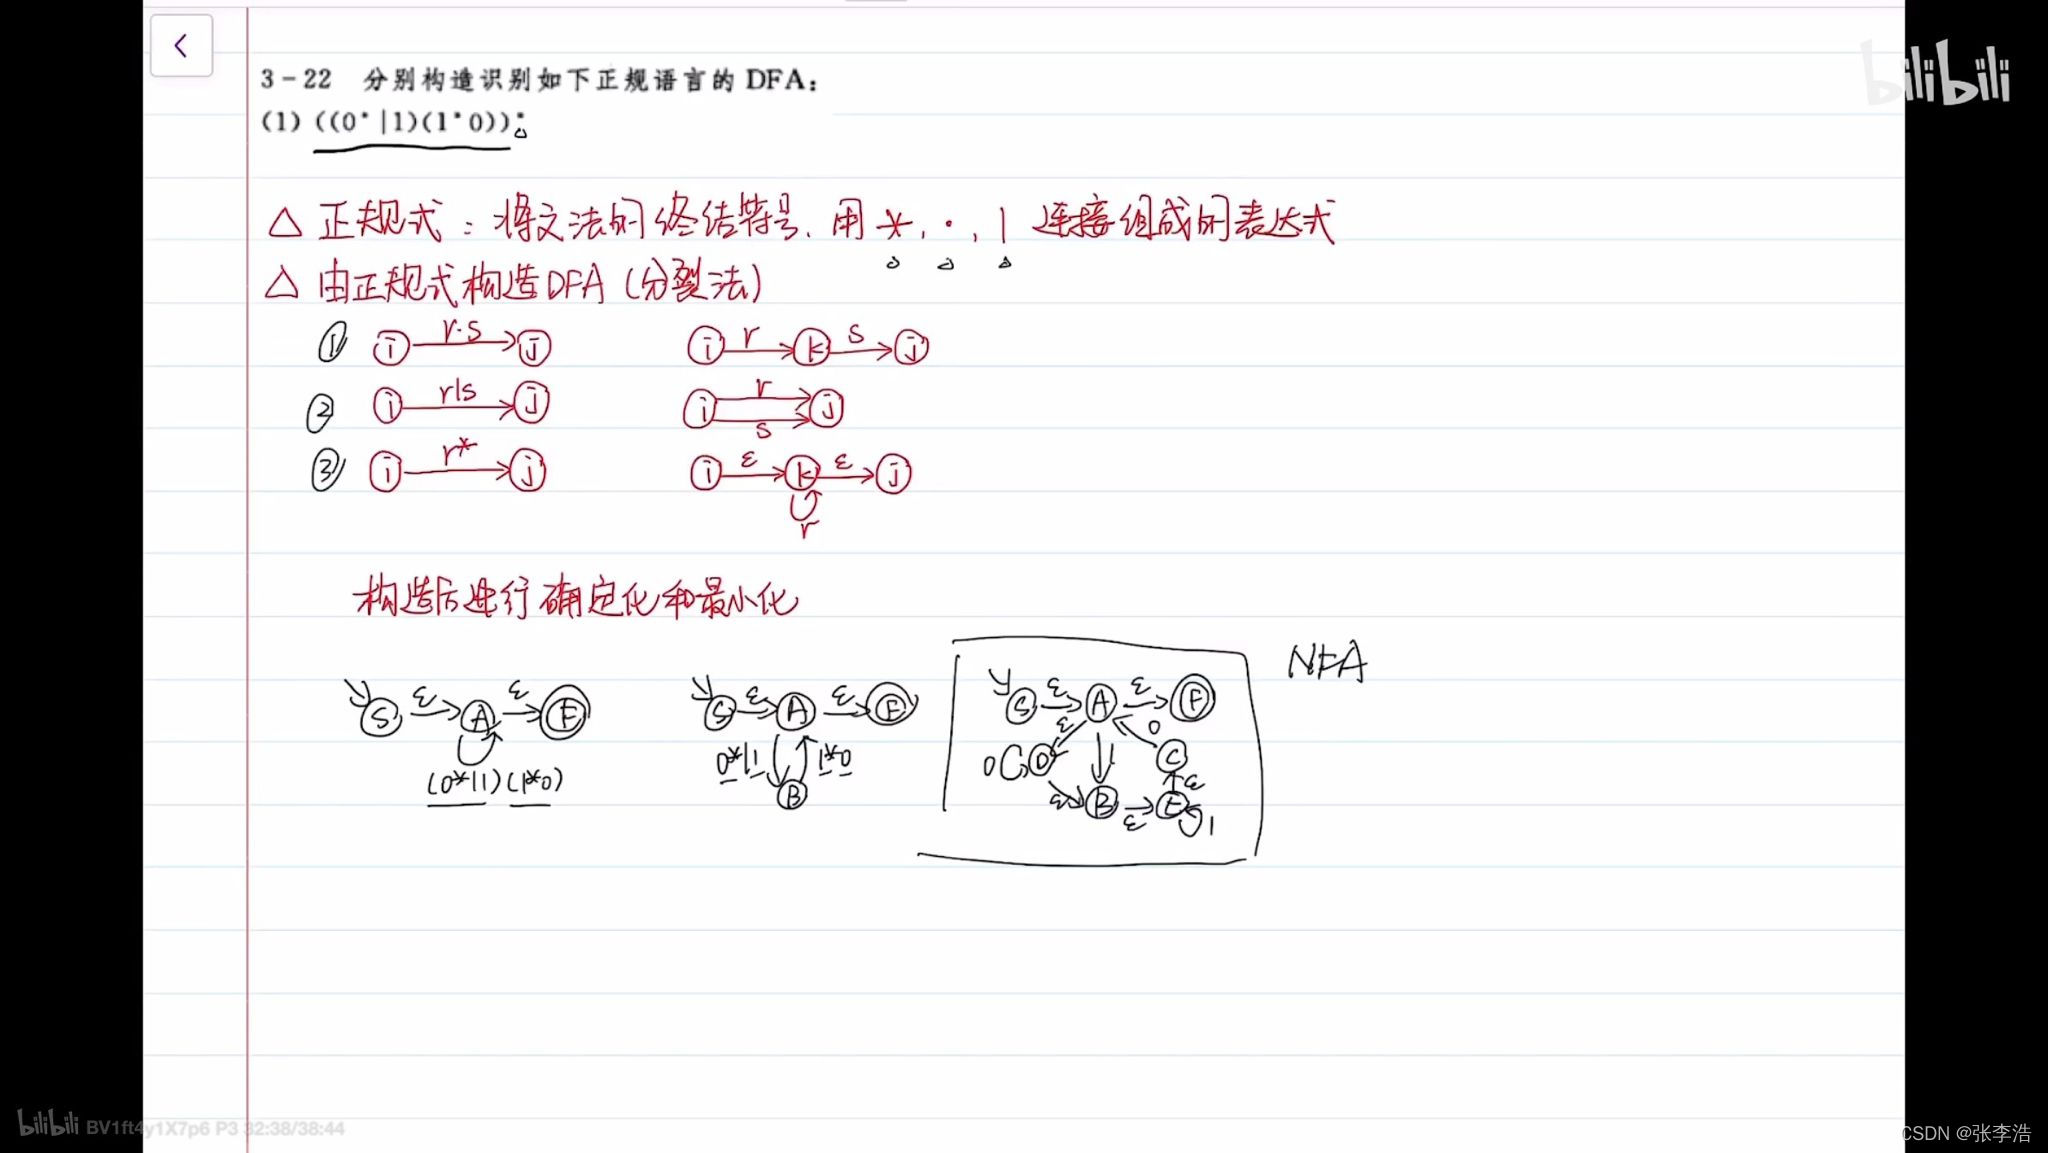 bilibili
3-22 分别构造识别如下正规语言的 DFA：
(1) ((0*|1)(1*0))*
△ 正规式：将文法的终结符号，用 *，·，| 连接组成的表达式
△ 由正规式构造DFA（分裂法）
① i r·s j i r k s j
② i r|s j i r s j
③ i r* j i ε k ε j r
构造后进行确定化和最小化
NFA
S ε A ε F (0*|1)(1*0)
S ε A ε F 0*|1 1*0 B
S ε A ε F ε 0 D 1 0 C ε ε B ε E 1
bilibili BV1ft4y1X7p6 P3 32:38/38:44
CSDN @张李浩